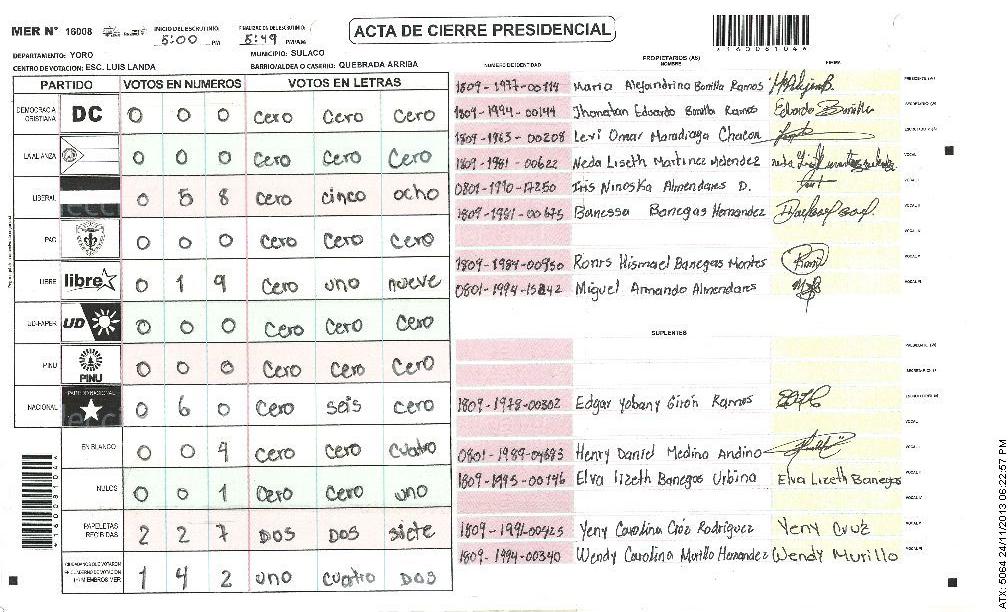 MER N° 16008
INICIO DEL ESCRUTINIO: 5:00 PM
FINALIZACION DEL ESCRUTINIO: 5:49 PM/AM
ACTA DE CIERRE PRESIDENCIAL
DEPARTAMENTO: YORO
MUNICIPIO: SULACO
CENTRO DE VOTACION: ESC. LUIS LANDA
BARRIO/ALDEA O CASERIO: QUEBRADA ARRIBA
PARTIDO VOTOS EN NUMEROS VOTOS EN LETRAS
DEMOCRACIA CRISTIANA DC 0 0 0 Cero Cero Cero
LA ALIANZA 0 0 0 Cero Cero Cero
LIBERAL 0 5 8 Cero cinco ocho
PAC 0 0 0 Cero Cero Cero
LIBRE libre 0 1 9 Cero uno nueve
UD-FAPER UD 0 0 0 Cero Cero Cero
PINU PINU 0 0 0 Cero Cero Cero
NACIONAL PARTIDO NACIONAL 0 6 0 Cero seis cero
EN BLANCO 0 0 4 Cero Cero Cuatro
NULOS 0 0 1 Cero Cero uno
PAPELETAS RECIBIDAS 2 2 7 DOS DOS siete
1 4 2 uno cuatro DOS
NUMERO DE IDENTIDAD
PROPIETARIOS (AS)
NOMBRE
FIRMA
Maria Alejandrina Bonilla Ramos
1809-1994-00144 Jhonatan Eduardo Bonilla Ramos Eduardo Bonilla
1809-1963-00208 Levi Omar Maradiaga Chacon
1809-1981-00622 Neda Liseth Martinez Melendez
Iris Ninoska Almendares D.
1809-1981-00675 Banessa Banegas Hernandez
1809-1984-00950 Ronis Hismael Banegas Montes
Miguel Armando Almendares
SUPLENTES
1809-1978-00302 Edgar Yobany Girón Ramos
Henry Daniel Medina Andino
1809-1995-00146 Elva Lizeth Banegas Urbina Elva Lizeth Banegas
Yeny Carolina Cruz Rodriguez Yeny Cruz
1809-1994-00340 Wendy Carolina Murillo Hernandez Wendy Murillo
ATX: 5064 24/11/2013 06:22:57 PM